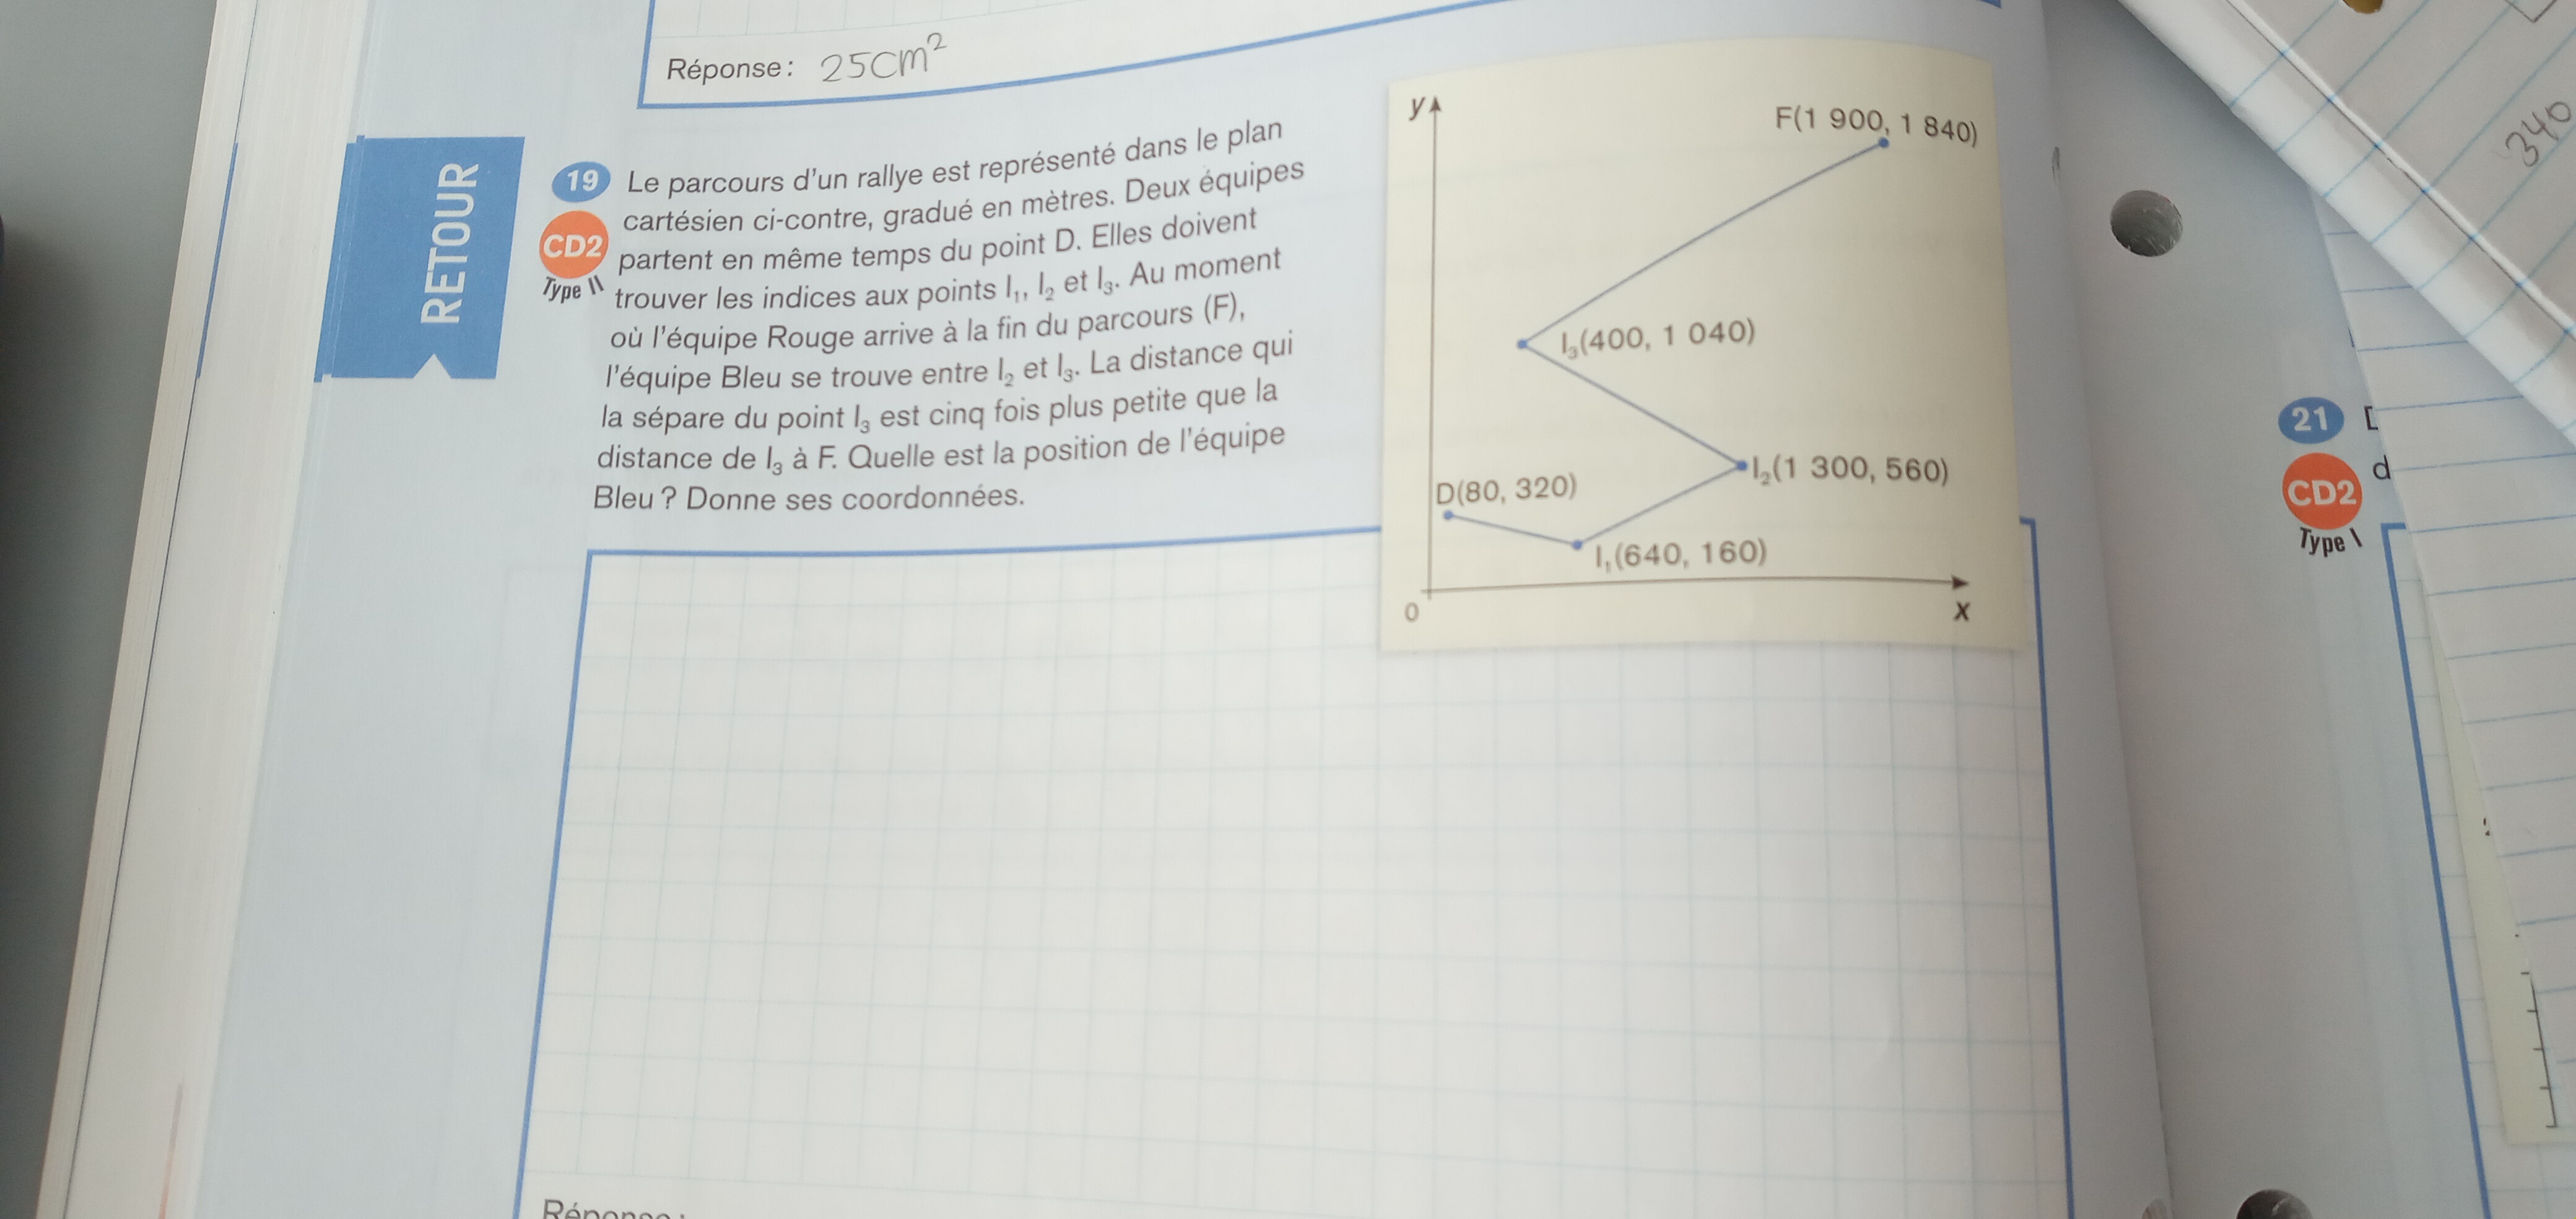 Réponse : 25cm²
RETOUR
19 Le parcours d'un rallye est représenté dans le plan
CD2 cartésien ci-contre, gradué en mètres. Deux équipes
Type II partent en même temps du point D. Elles doivent
trouver les indices aux points I₁, I₂ et I₃. Au moment
où l'équipe Rouge arrive à la fin du parcours (F),
l'équipe Bleu se trouve entre I₂ et I₃. La distance qui
la sépare du point I₃ est cinq fois plus petite que la
distance de I₃ à F. Quelle est la position de l'équipe
Bleu ? Donne ses coordonnées.
y
F(1 900, 1 840)
I₃(400, 1 040)
I₂(1 300, 560)
D(80, 320)
I₁(640, 160)
0
x
Réponse :
340
21
d
CD2
Type I